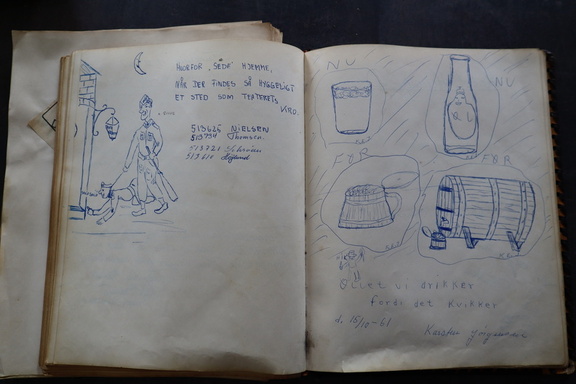 HVORFOR "SIDE" HJEMME,
NÅR DER FINDES SÅ HYGGELIGT
ET STED SOM TEATERETS
KRO.
513625 NIELSEN
513734 Thomsen.
513721
513610
NU
NU
ØL
FØR
FØR
Øllet vi drikker
fordi det kvikker
d. 15/12-61
Karsten Jørgensen